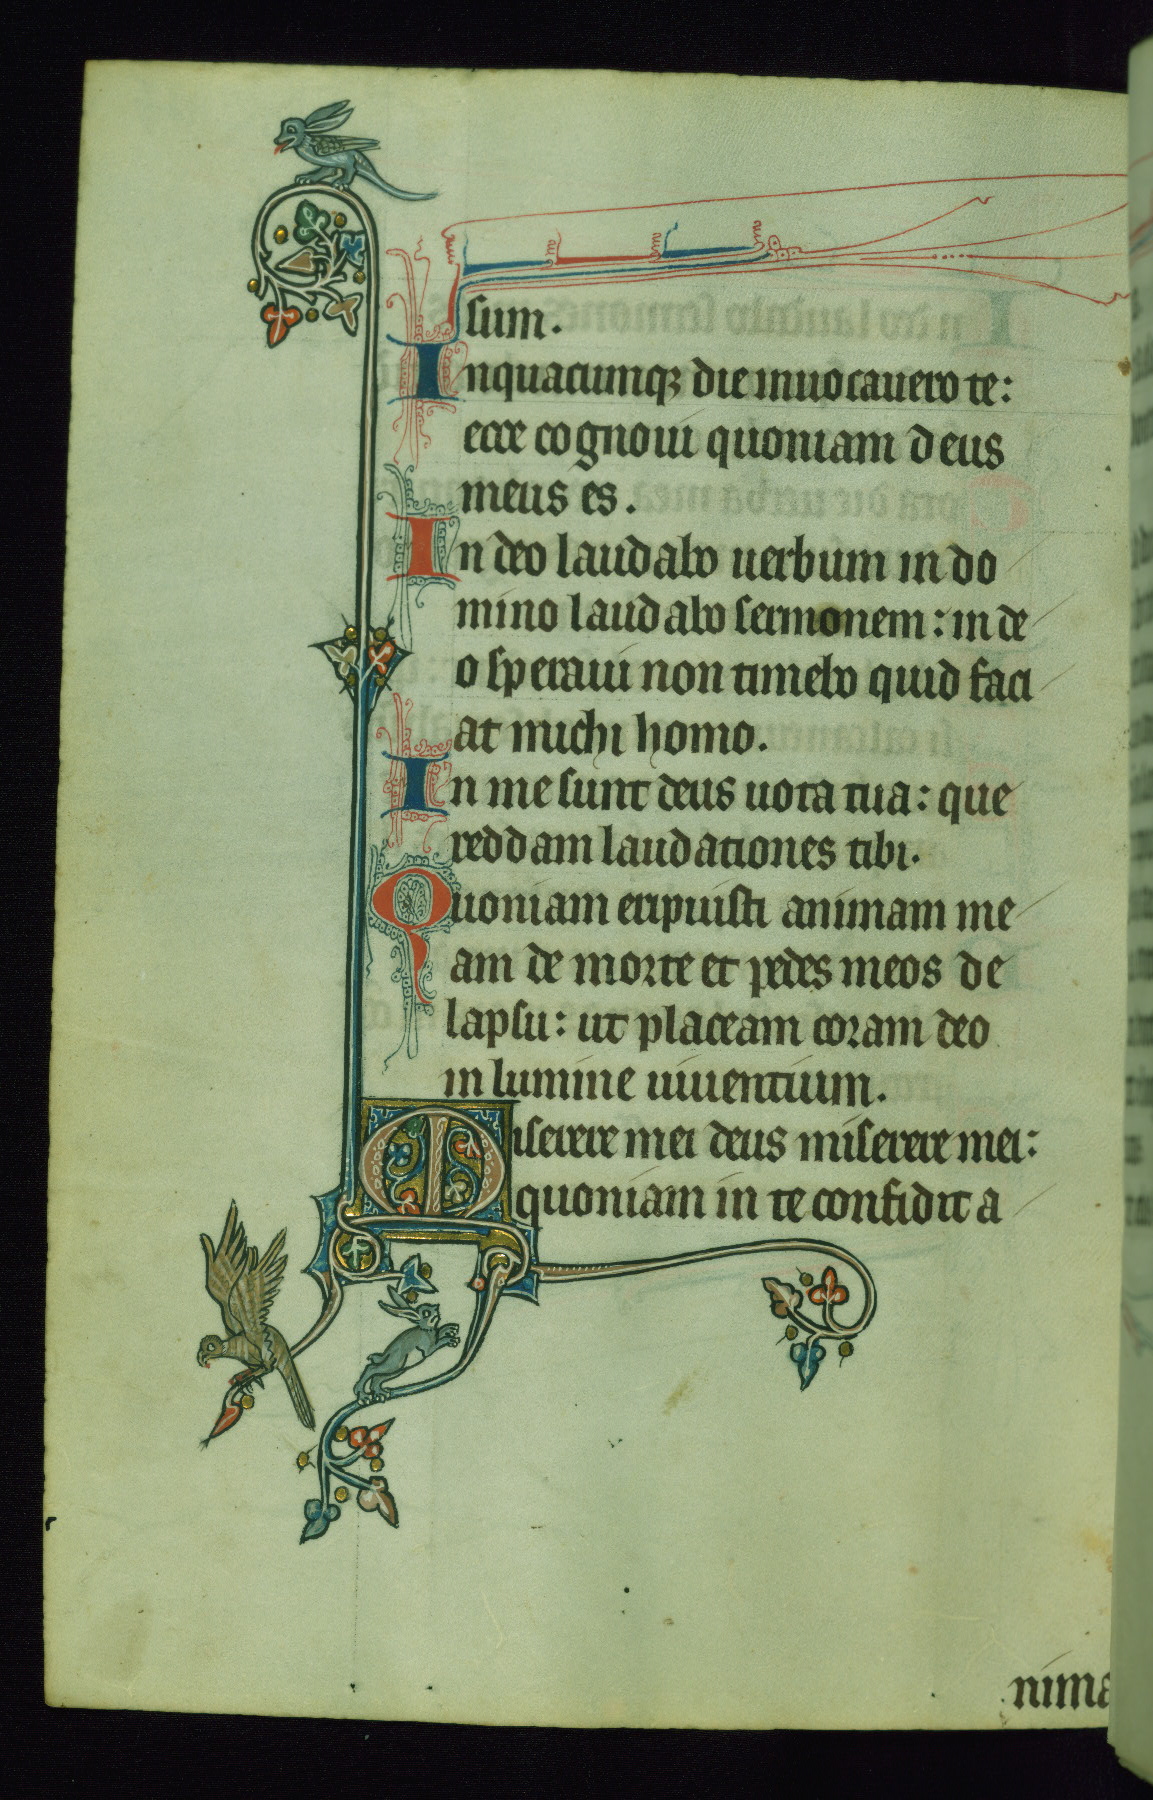 sum.
Inquacumqꝫ die inuocauero te:
ecce cognoui quoniam deus
meus es.
In deo laudabo uerbum in do
mino laudabo sermonem: in de
o speraui non timebo quid faci
at michi homo.
In me sunt deus uota tua: que
reddam laudationes tibi.
Quoniam eripuisti animam me
am de morte et pedes meos de
lapsu: ut placeam coram deo
in lumine uiuentium.
Miserere mei deus miserere mei:
quoniam in te confidit a
nima